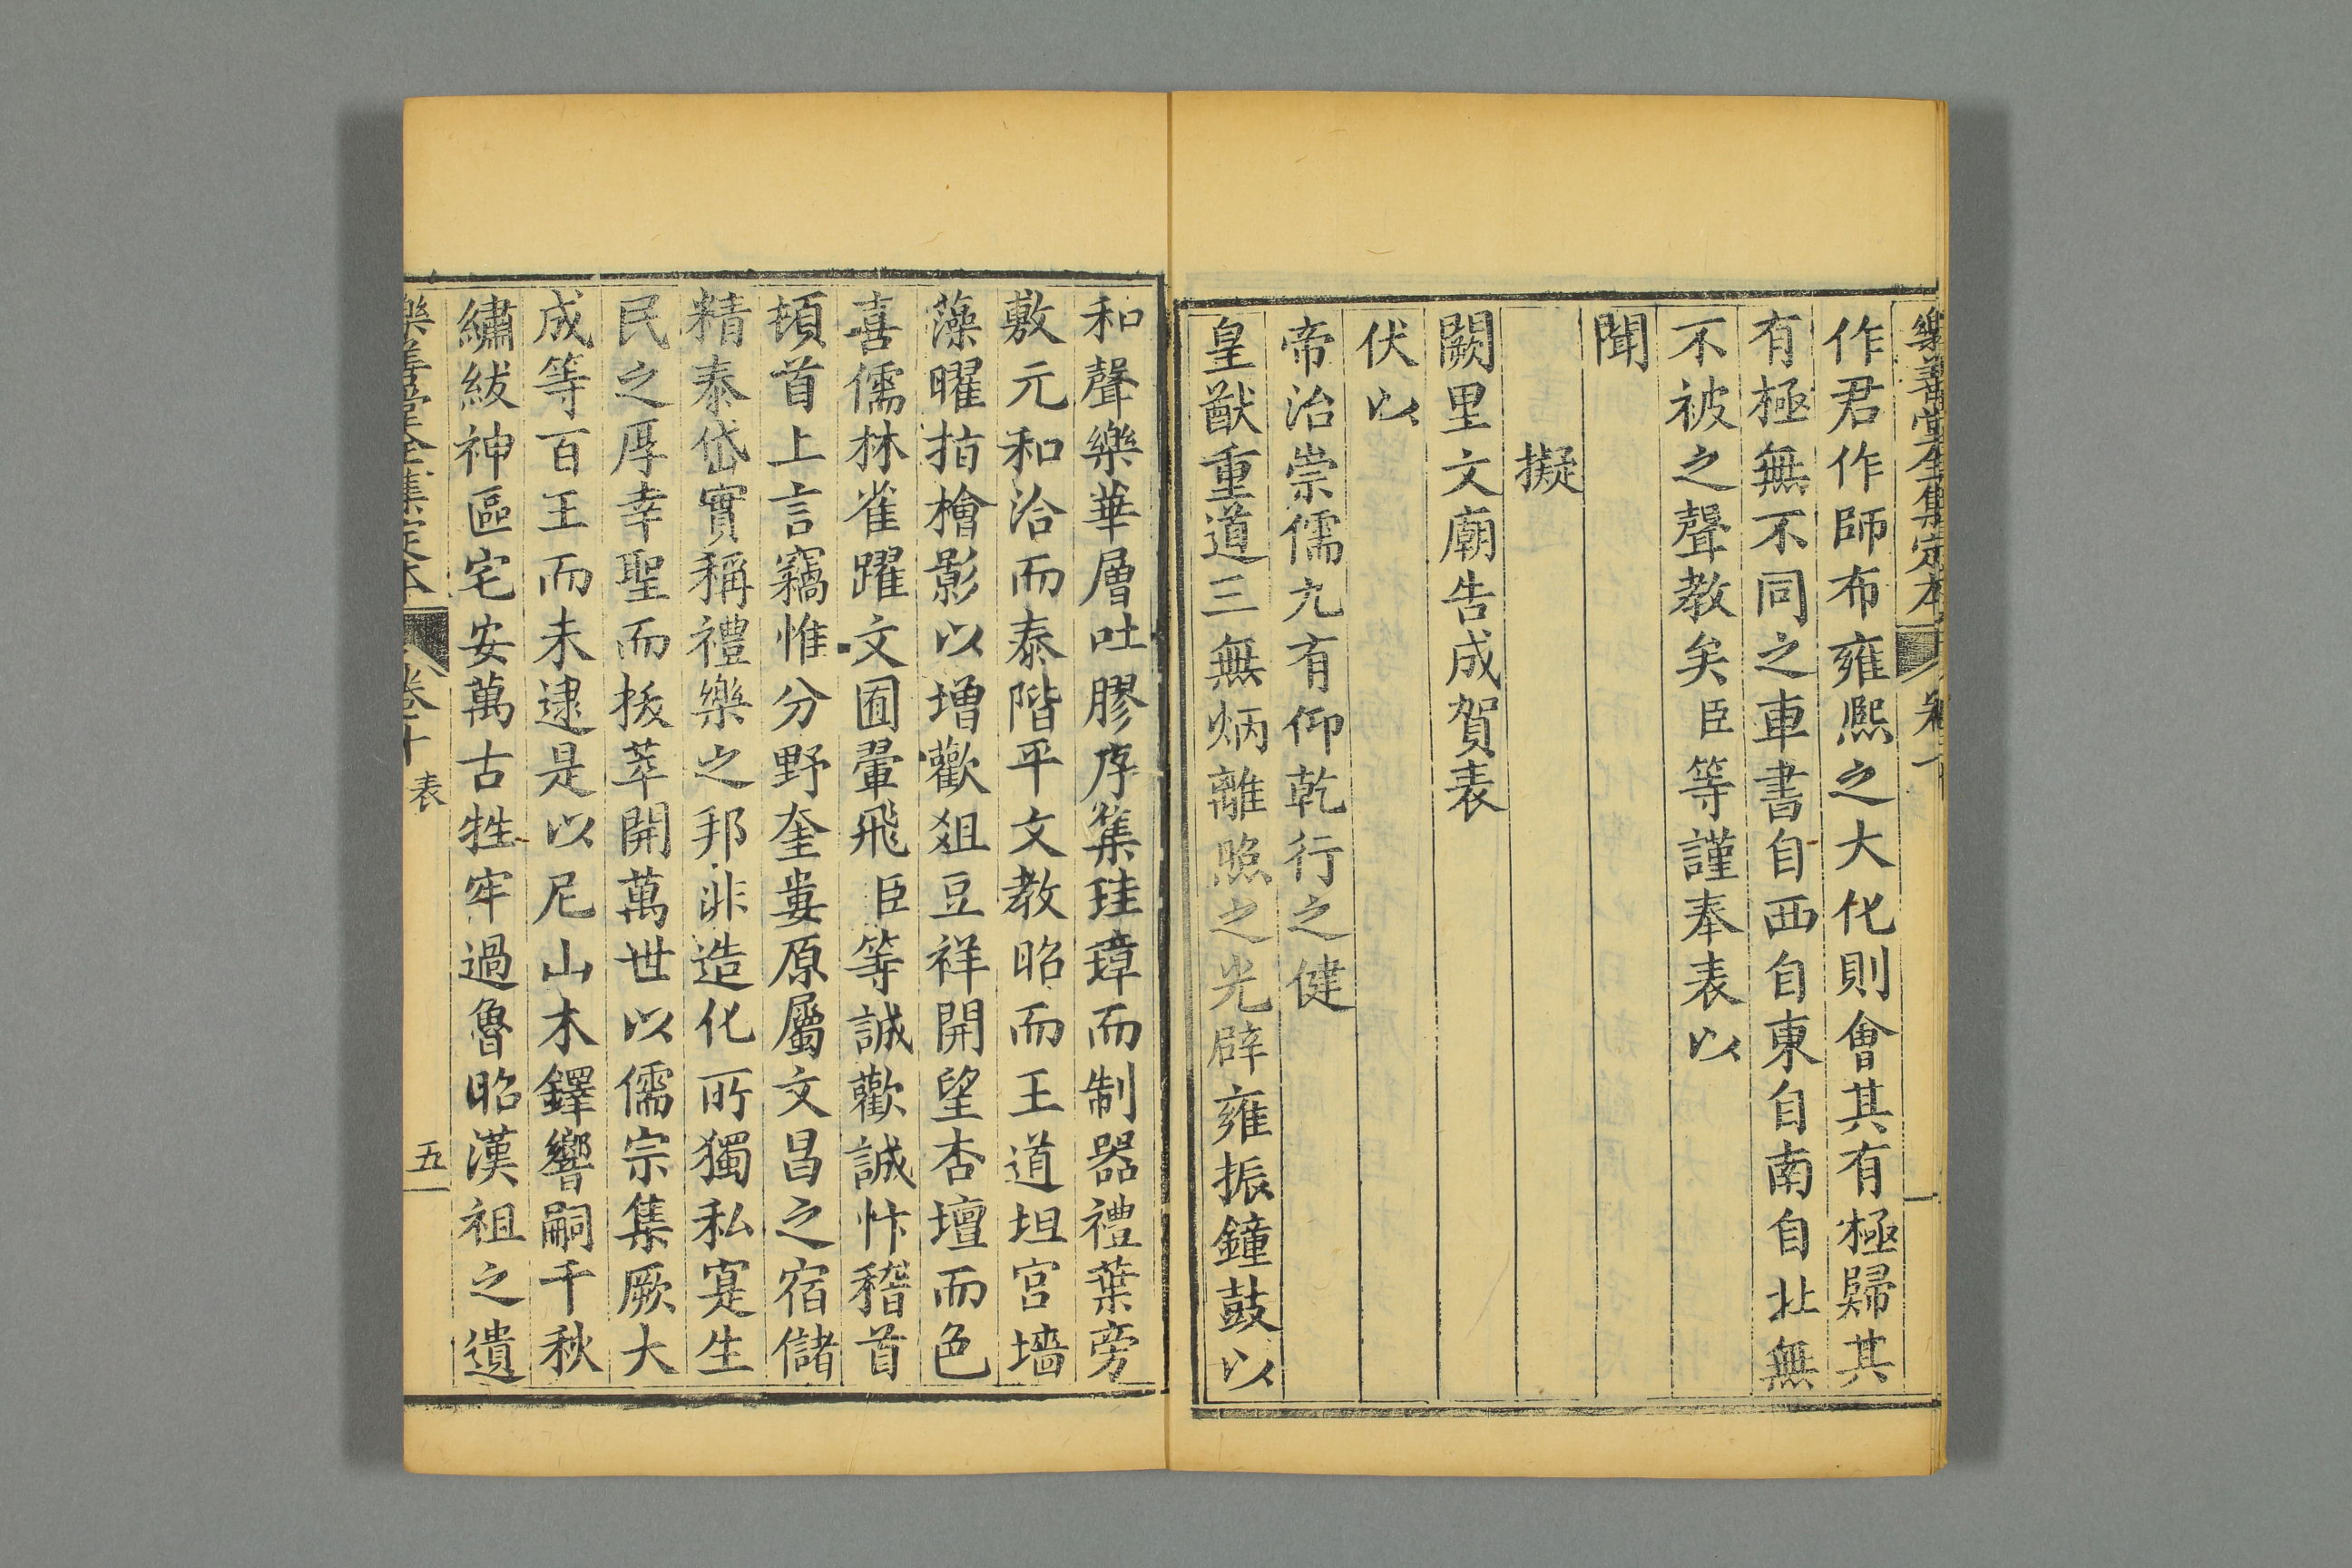 樂善堂全集定本
作君作師布雍熙之大化則會其有極歸其
有極無不同之車書自西自東自南自北無
不被之聲教矣臣等謹奉表以
聞
擬
闕里文廟告成賀表
伏以
帝治崇儒九有仰乾行之健
皇猷重道三無炳離照之光辟雍振鐘鼓以
和聲樂華層吐膠庠集珪璋而制器禮葉旁
敷元和洽而泰階平文教昭而王道坦宮墻
藻曜指檜影以增歡俎豆祥開望杏壇而色
喜儒林雀躍文囿翬飛臣等誠歡誠忭稽首
頓首上言竊惟分野奎婁原屬文昌之宿儲
精泰岱實稱禮樂之邦非造化所獨私寔生
民之厚幸聖而拔萃開萬世以儒宗集厥大
成等百王而未逮是以尼山木鐸響嗣千秋
繡紱神區宅安萬古牲牢過魯昭漢祖之遺
樂善堂全集定本 卷十 表 五